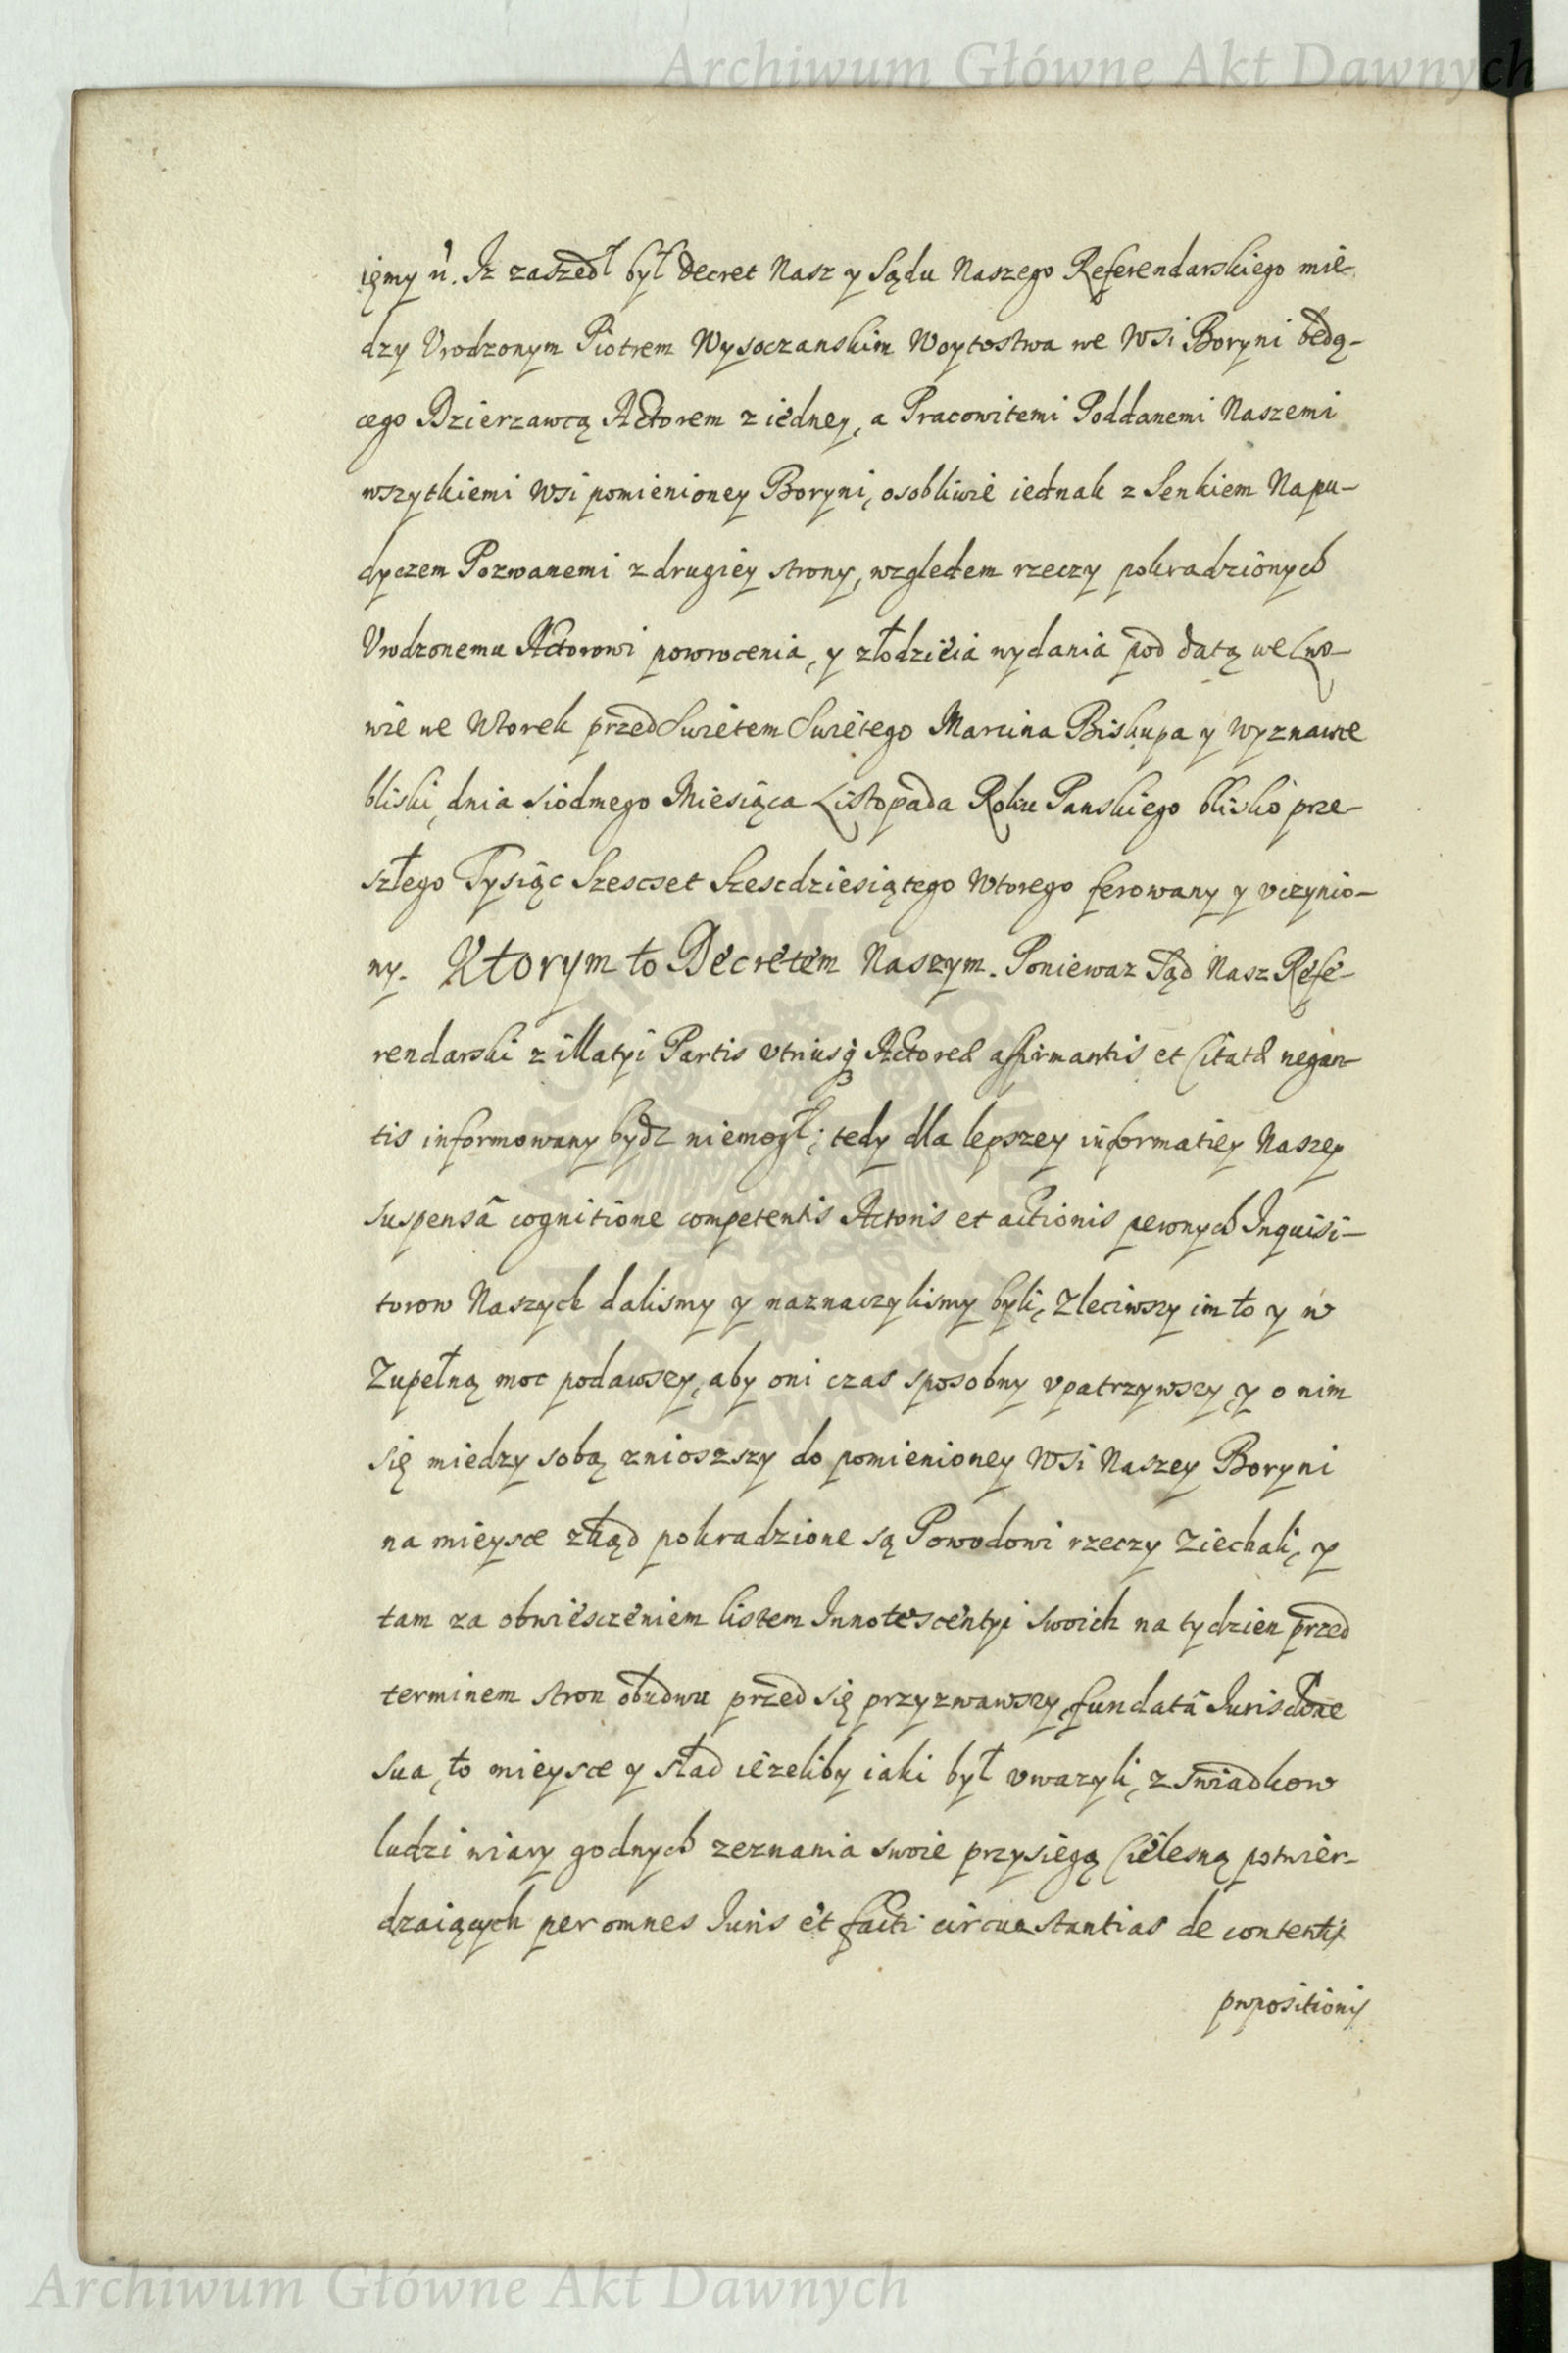 Archiwum Główne Akt Dawnych
ięmy ń. Iz zaszedł był Decret Nasz y Sądu Naszego Referendarskiego mie-
dzy Vrodzonym Piotrem Wysoczanskim Woytostwa we Wsi Boryni będą-
cego Dzierzawcą Actorem z iedney, a Pracowitemi Poddanemi Naszemi
wszytkiemi Wsi pomienioney Boryni, osobliwie iednak z Senkiem Napu-
dyczem Pozwanemi z drugiey strony, względem rzeczy pokradzionych
Vrodzonemu Actorowi powrocenia, y złodzieia wydania pod datą we Lwo-
wie we Wtorek przed Swietem Swietego Marcina Biskupa y Wyznawce
bliski, dnia siodmego Miesiąca Listopada Roku Panskiego blisko prze-
szłego Tysiąc Szescset Szescdziesiątego Wtorego ferowany y vczynio-
ny. Ktorym to Decretem Naszym. Poniewaz Sąd Nasz Refe-
rendarski z illatyi Partis vtriusq Actoreæ affirmantis et Citatæ negan-
tis informowany bydz niemogł; tedy dla lepszey informatiey Naszey
suspensâ cognitione competentis Actoris et actionis pewnych Inquisi-
torow Naszych dalismy y naznaczylismy byli, Zleciwszy im to y w
Zupełną moc podawszy, aby oni czas sposobny vpatrzywszy, y o nim
się miedzy sobą znioszszy do pomienioney Wsi Naszey Boryni
na mieysce zkąd pokradzione są Powodowi rzeczy Ziechali, y
tam za obwiesczeniem listem Innotescentyi swoich na tydzien przed
terminem stron obudwu przed się przyzwawszy, fundatâ Iurisdōne
sua, to mieysce y sład iezeliby iaki był vwazyli, z swiadkow
ludzi wiary godnych zeznania swoie przysięgą Cielesną potwier-
dzaiących per omnes Iuris et facti circumstantias de contentis
propositionis
Archiwum Główne Akt Dawnych